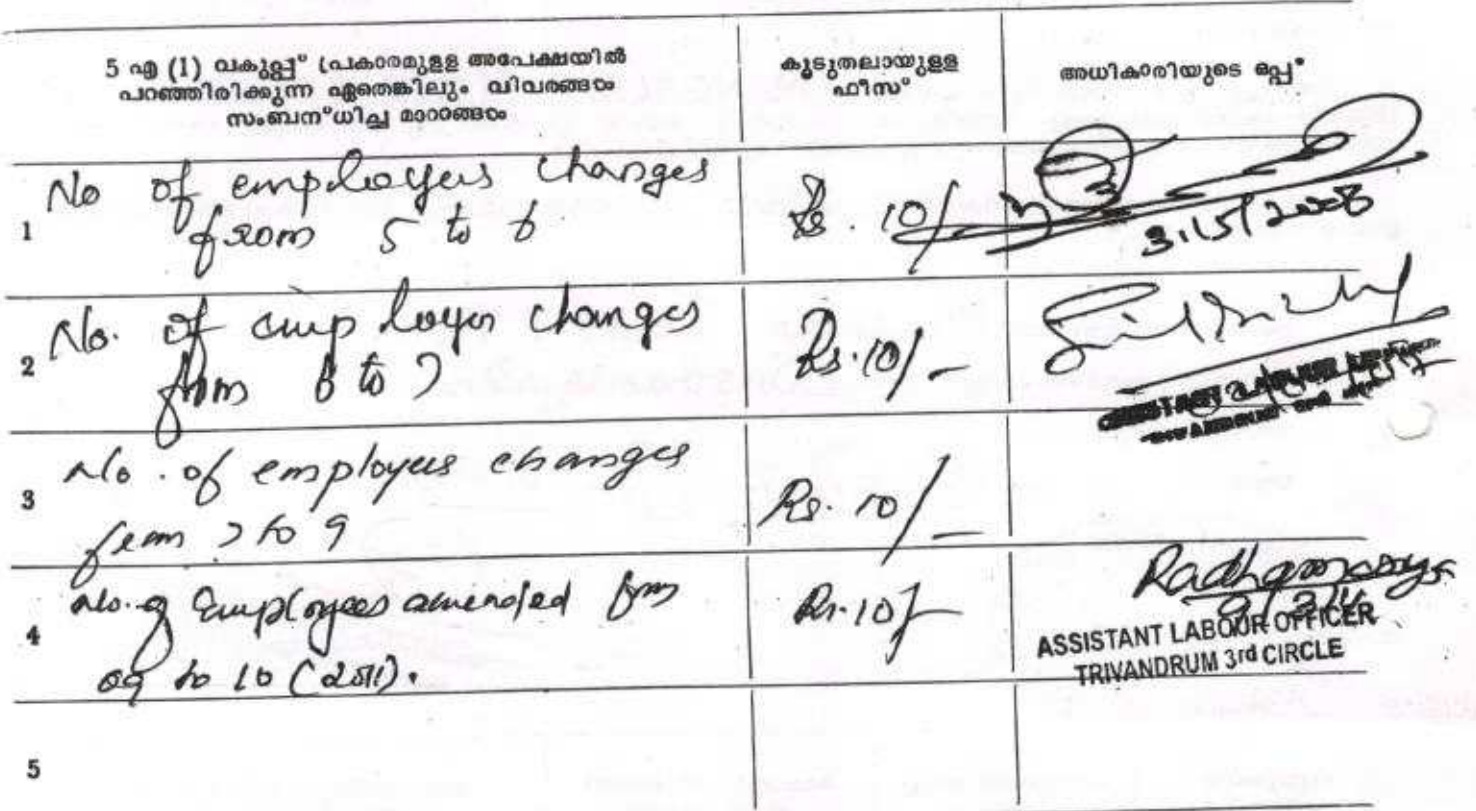 5 എ (1) വകുപ്പ് പ്രകാരമുള്ള അപേക്ഷയിൽ
പറഞ്ഞിരിക്കുന്ന ഏതെങ്കിലും വിവരങ്ങൾ
സംബന്ധിച്ച മാറ്റങ്ങൾ
കൂടുതലായുള്ള
ഫീസ്
അധികാരിയുടെ ഒപ്പ്
1 No of employees changes
from 5 to 6
Rs. 10/-
3/5/2008
2 No. of employees changes
from 6 to 7
Rs. 10/-
3 No. of employees changes
from 7 to 9
Rs. 10/-
4 No. of Employees amended from
09 to 10 (2011).
Rs. 10/-
ASSISTANT LABOUR OFFICER
TRIVANDRUM 3rd CIRCLE
5